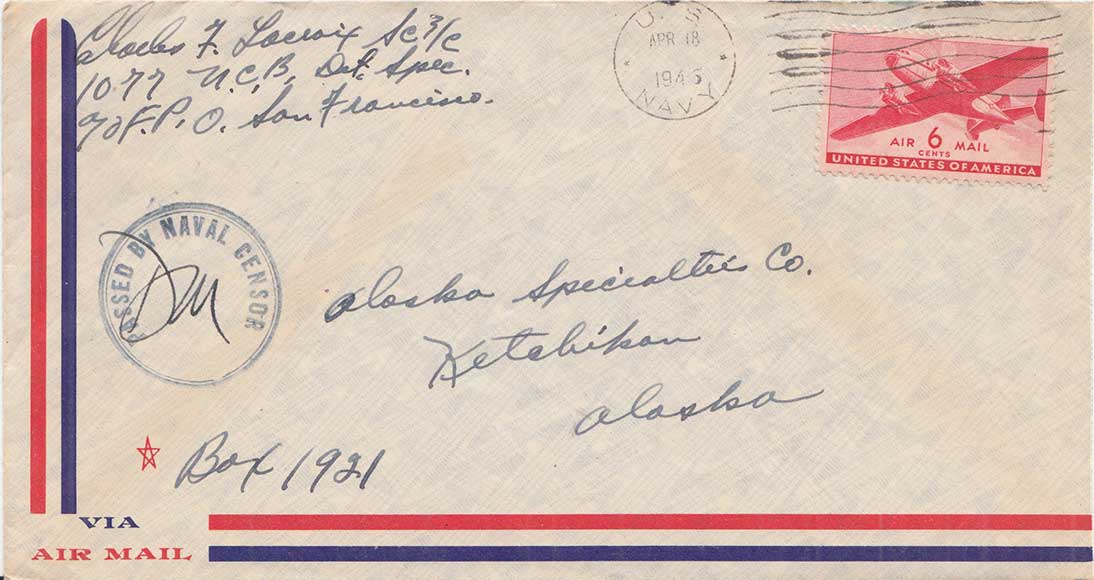 Charles F. Lacroix SC 3/c
1077 N.C.B, Det, Spec.
℅ F.P.O. San Francisco.
U.S.
APR 18
1945
NAVY
AIR 6 MAIL
CENTS
UNITED STATES OF AMERICA
PASSED BY NAVAL CENSOR
Alaska Specialties Co.
Ketchikan
Alaska
Box 1921
VIA
AIR MAIL